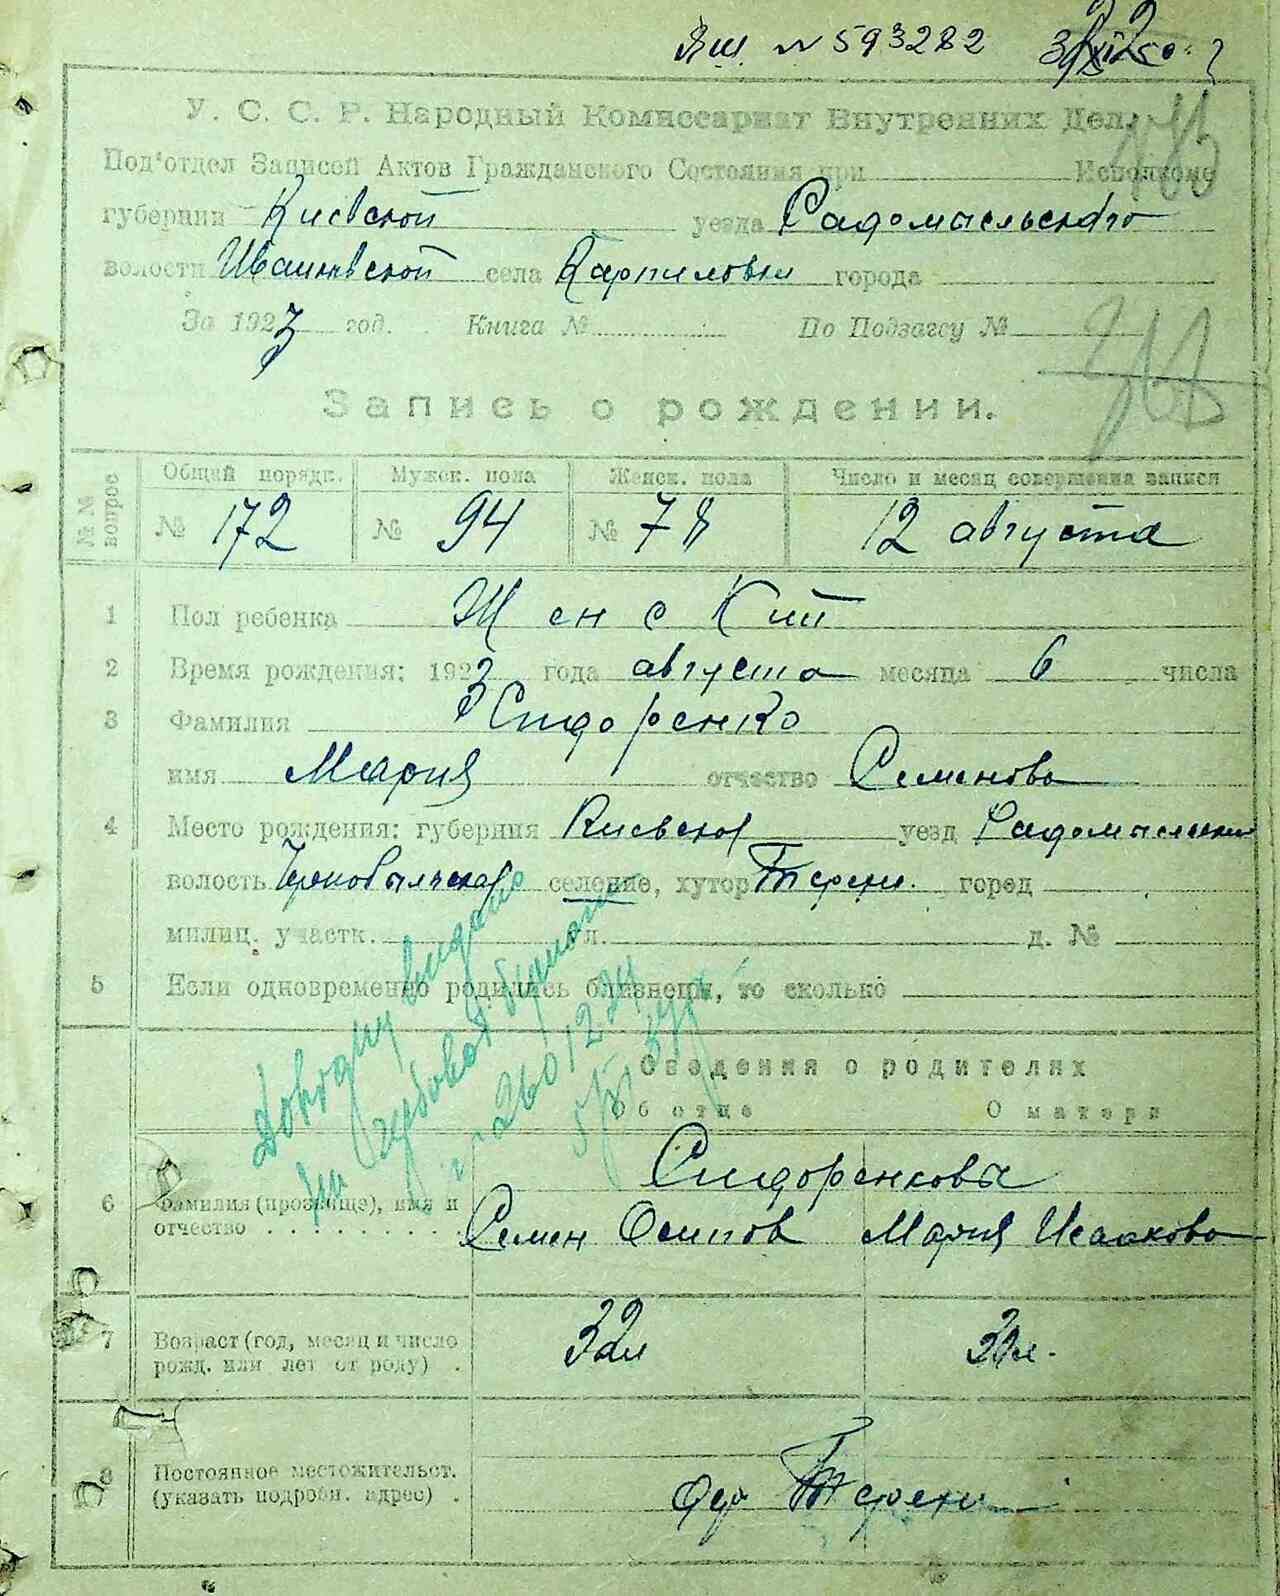 ЯШ № 593282
У. С. С. Р. Народный Комиссариат Внутренних Дел.
Под'отдел Записей Актов Гражданского Состояния при Исполкоме
губернии Киевской уезда Радомысльского
волости Иванковской села Карпиловки города
За 1923 год. Книга № По Подзагсу №
Запись о рождении.
№№ вопрос
Общий порядк. Мужск. пола Женск. пола Число и месяц совершения записи
№ 172 № 94 № 78 12 августа
1 Пол ребенка Женский
2 Время рождения: 1923 года августа месяца 6 числа
3 Фамилия Сидоренко
имя Мария отчество Семенова
4 Место рождения: губерния Киевская уезд Радомысльский
волость Чернобыльская селение, хутор Терехи. город
милиц. участк. л. д. №
5 Если одновременно родились близнецы, то сколько
Сведения о родителях
Об отце О матери
Сидоренковы
6 Фамилия (прозвище), имя и
отчество . . . . . . . . . Семен Осипов Мария Исакова
7 Возраст (год, месяц и число
рожд. или лет от роду) . 32 л
8 Постоянное местожительст.
(указать подробн. адрес) . Терехи